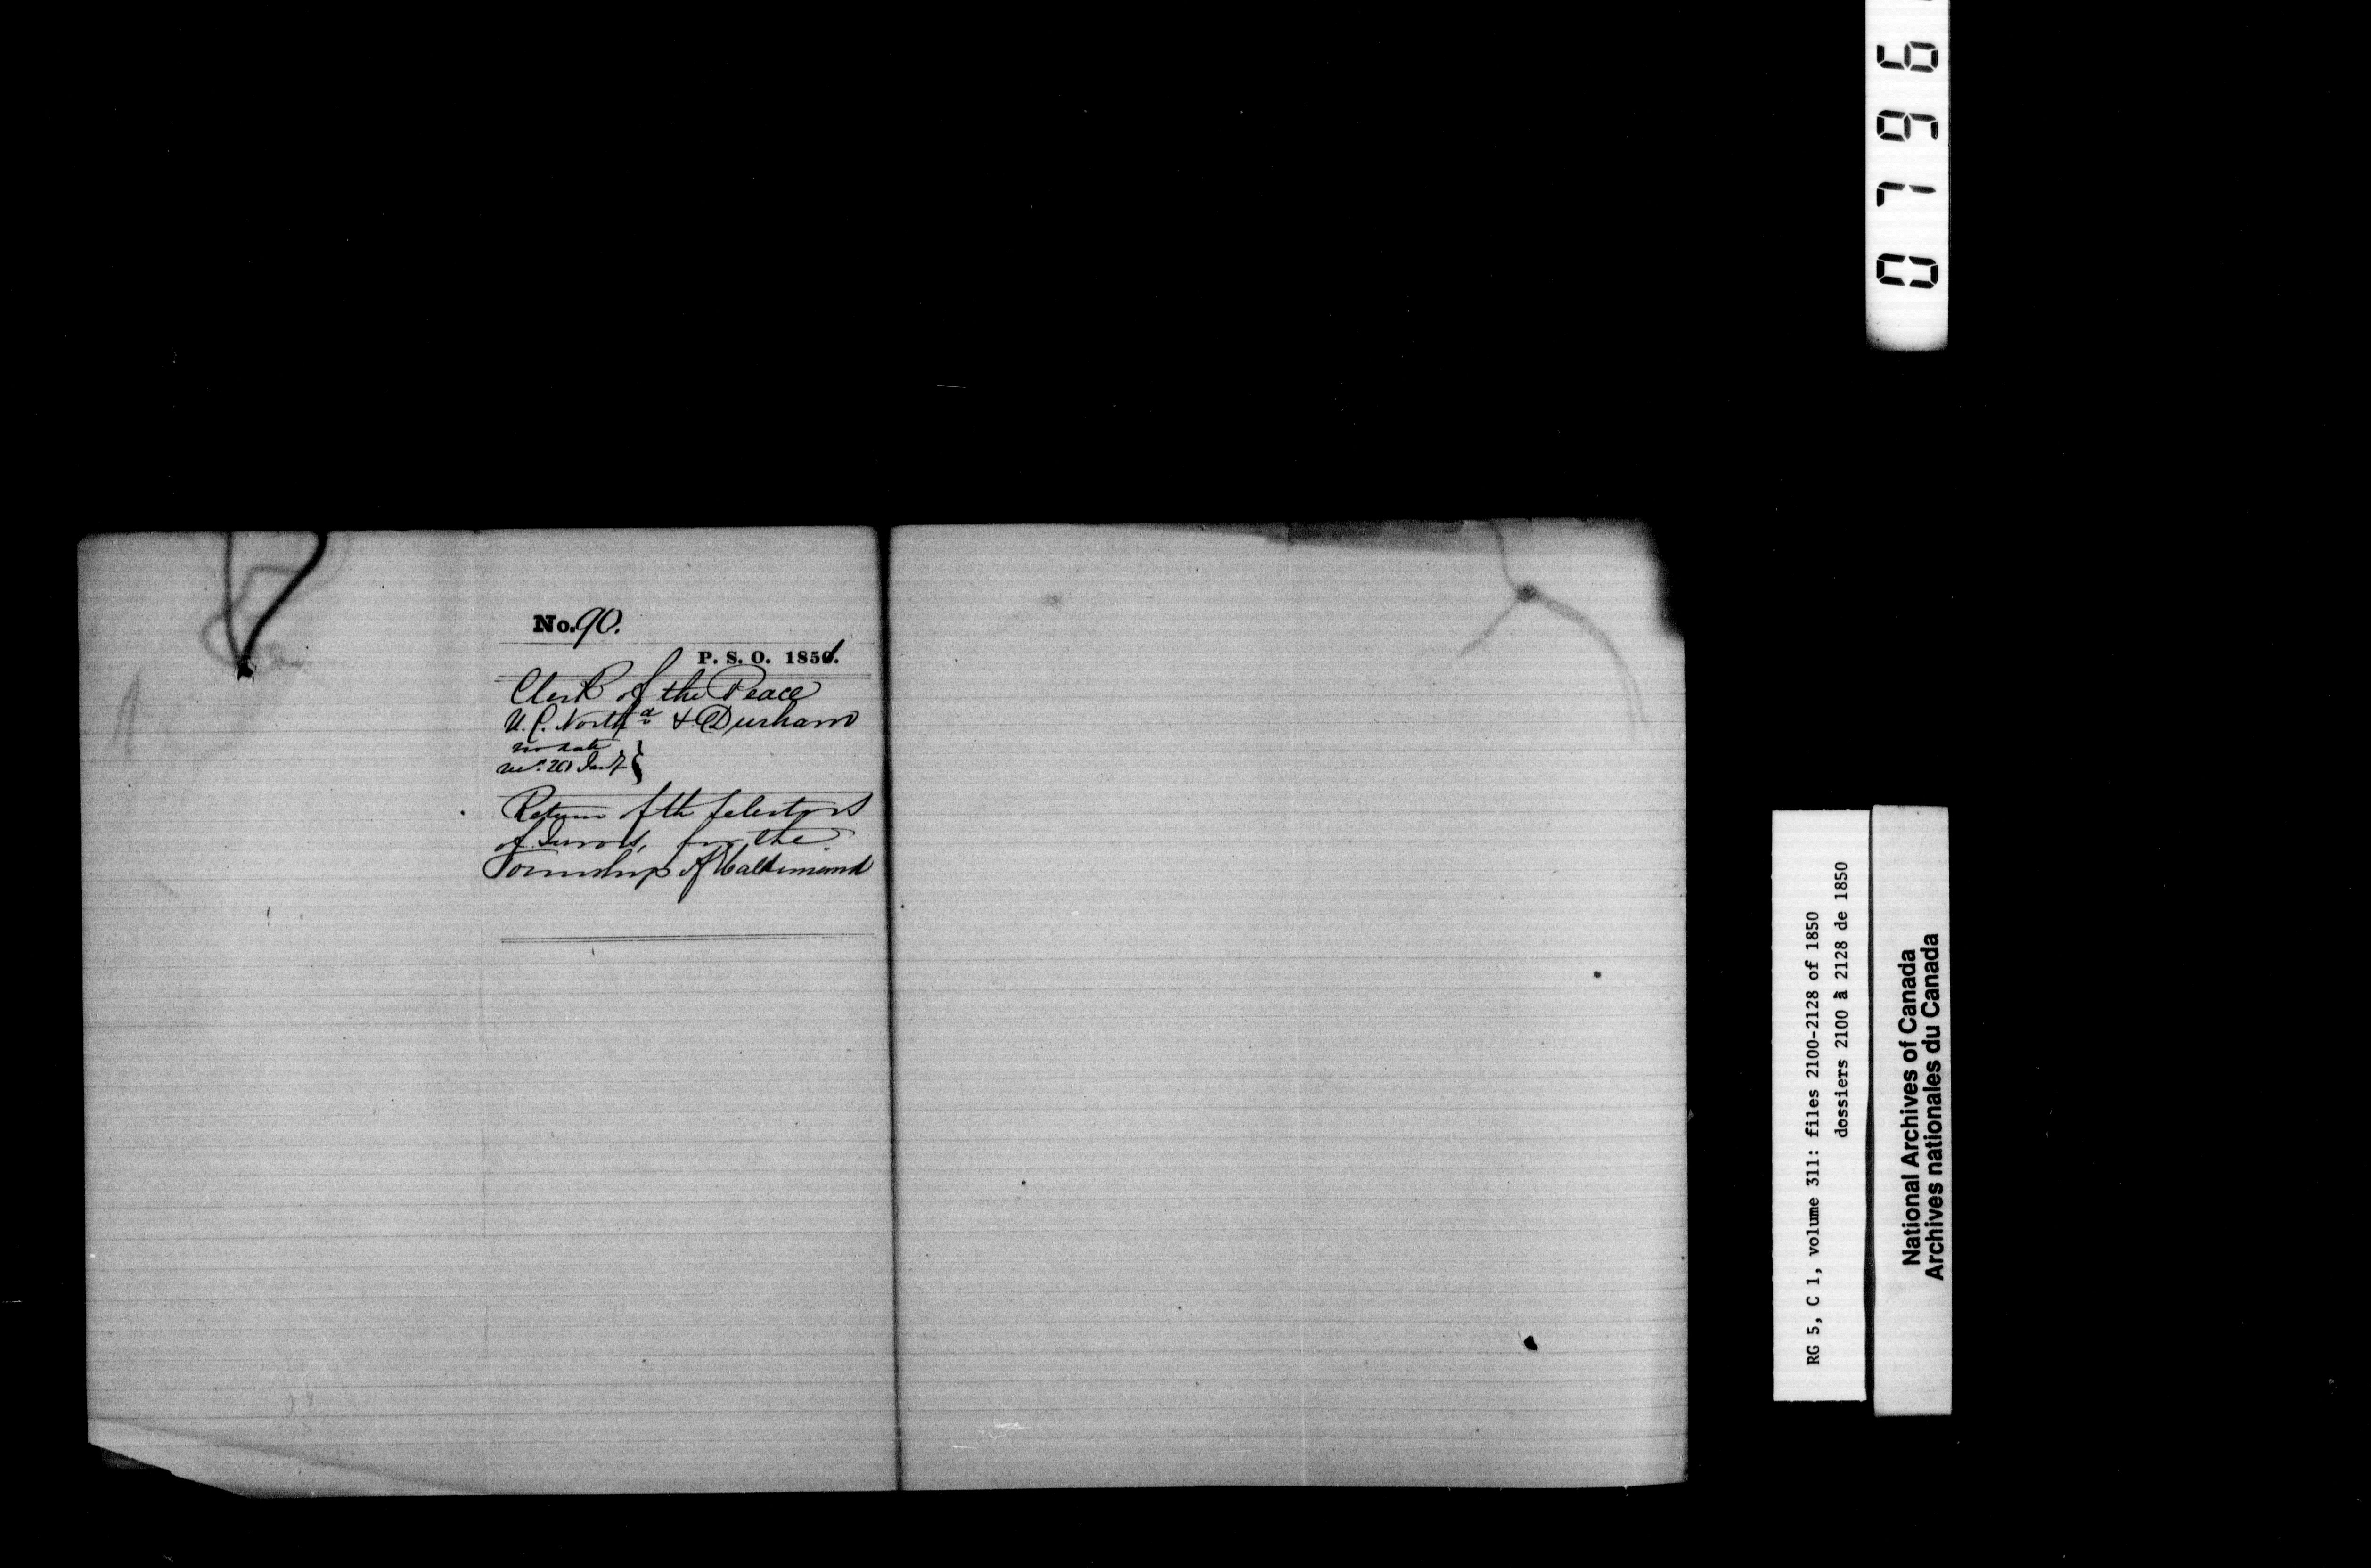 No. 90.
P. S. O. 1851.
Clerk of the Peace
U. C. North^d & Durham
no date
rec^d. 20 Jan^y
Return of the selectors
of Jurors, for the
Township of Haldimand
0796
RG 5, C 1, volume 311: files 2100-2128 of 1850
dossiers 2100 à 2128 de 1850
National Archives of Canada
Archives nationales du Canada